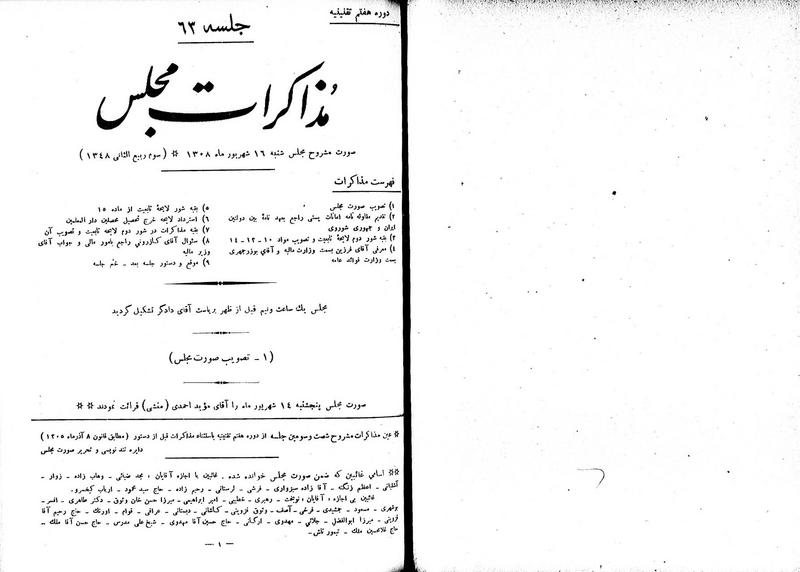 دوره هفتم تقنینیه
جلسه ۶۳
مذاکرات مجلس
صورت مشروح مجلس شنبه ۱۶ شهریور ماه ۱۳۰۸ * (سوم ربیع الثانی ۱۳۴۸)
فهرست مذاکرات
۱) تصویب صورت مجلس
۲) تقدیم مقاوله نامه امانات پستی راجع بعهد نامهٔ بین دولتین
ایران و جمهوری شوروی
۳) بقیه شور دوم لایحهٔ تابعیت و تصویب مواد ۱۰-۱۲-۱۴
۴) معرفی آقای فرزین بسمت وزارت مالیه و آقای بوذرجمهری
بسمت وزارت فوائد عامه
۵) بقیه شور لایحهٔ تابعیت از ماده ۱۵
۶) استرداد لایحهٔ خرج تحصیل محصلین دار المعلمین
۷) بقیه مذاکرات در شور دوم لایحهٔ تابعیت و تصویب آن
۸) سئوال آقای کازرونی راجع بامور مالی و جواب آقای
وزیر مالیه
۹) موقع و دستور جلسه بعد - ختم جلسه
مجلس یك ساعت ونیم قبل از ظهر بریاست آقای دادگر تشکیل گردید
(۱ - تصویب صورت مجلس)
صورت مجلس پنجشنبه ۱۴ شهریور ماه را آقای مؤید احمدی (منشی) قرائت نمودند **
* عین مذاکرات مشروح شصت وسومین جلسه از دوره هفتم تقنینیه باستثناء مذاکرات قبل از دستور (مطابق قانون ۸ آذرماه ۱۳۰۵)
دایره تند نویسی و تحریر صورت مجلس
** اسامی غائبین که ضمن صورت مجلس خوانده شده. غائبین با اجازه آقایان: مجد ضیائی - وهاب زاده - زوار -
آشتیانی - اعظم زنگنه - آقا زاده سبزواری - فرشی - لرستانی - رحیم زاده - حاج سید محمود - ارباب کیخسرو.
غائبین بی اجازه، آقایان: نوبخت - رهبری - خطیبی - امیر ابراهیمی - میرزا حسن خان وثوق - دکتر طاهری - افسر -
بوشهری - مسعود - جمشیدی - فرخی - آصف - وثوق قزوینی - کاشانی - دبستانی - عراقی - قوام - اورنك - حاج رحیم آقا
قزوینی - میرزا ابوالفضل - جلائی - مهدوی - ارکانی - حاج حسین آقا مهدوی - شیخ علی مدرس - حاج حسن آقا ملك -
حاج غلامحسین ملك - تیمور تاش.
- ۱ -